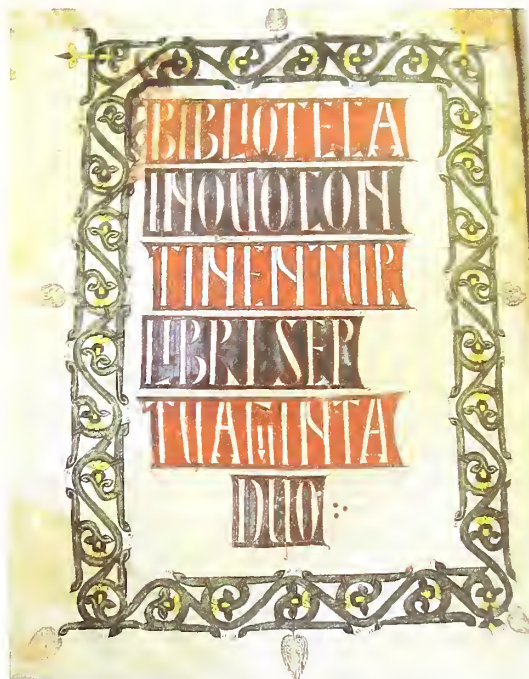 BIBLIOTECA
INQUO CON
TINENTUR
LIBRI SEP
TUAGINTA
DUO